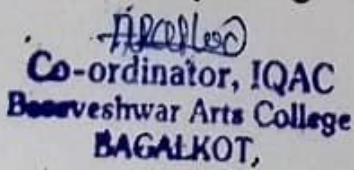 Co-ordinator, IQAC
Basaveshwar Arts College
BAGALKOT,